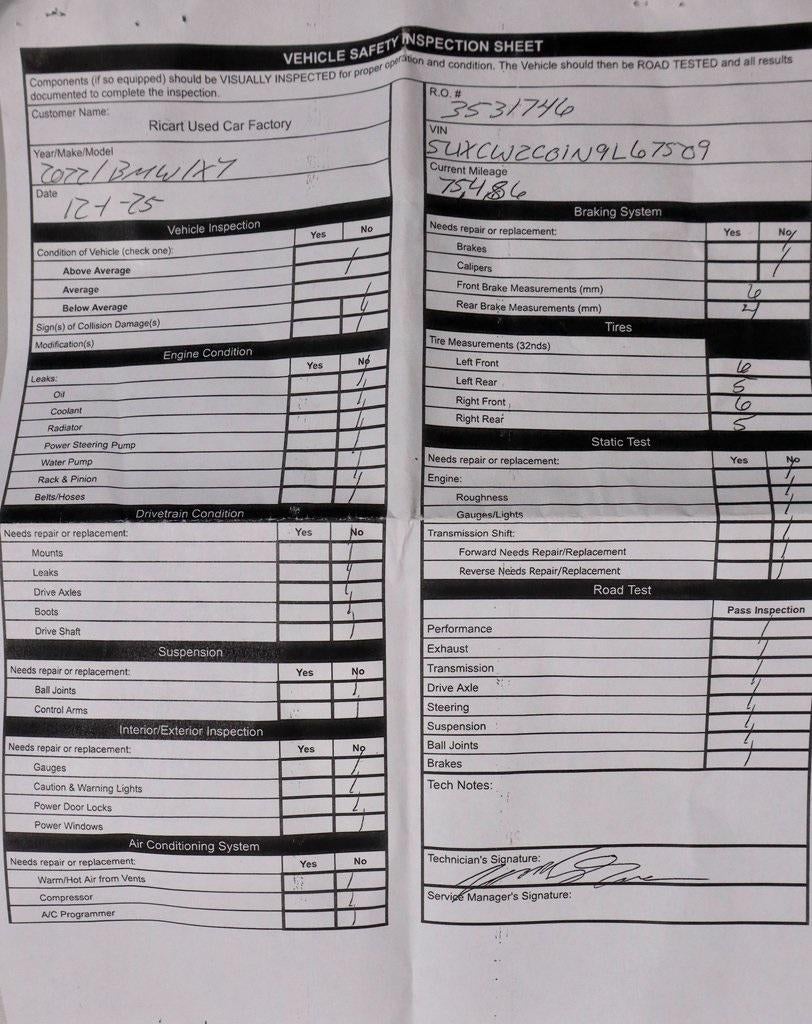 VEHICLE SAFETY INSPECTION SHEET
Components (if so equipped) should be VISUALLY INSPECTED for proper operation and condition. The Vehicle should then be ROAD TESTED and all results
documented to complete the inspection.
Customer Name:
Ricart Used Car Factory
Year/Make/Model
2022/BMW/X7
Date
12-1-25
R.O. #
3531746
VIN
5UXCW2C01N9L67509
Current Mileage
75,486
Vehicle Inspection
Yes No
Condition of Vehicle (check one):
Above Average
Average
Below Average
Sign(s) of Collision Damage(s)
Modification(s)
Engine Condition
Yes No
Leaks:
Oil
Coolant
Radiator
Power Steering Pump
Water Pump
Rack & Pinion
Belts/Hoses
Drivetrain Condition
Needs repair or replacement: Yes No
Mounts
Leaks
Drive Axles
Boots
Drive Shaft
Suspension
Needs repair or replacement: Yes No
Ball Joints
Control Arms
Interior/Exterior Inspection
Needs repair or replacement: Yes No
Gauges
Caution & Warning Lights
Power Door Locks
Power Windows
Air Conditioning System
Needs repair or replacement: Yes No
Warm/Hot Air from Vents
Compressor
A/C Programmer
Braking System
Needs repair or replacement: Yes No
Brakes
Calipers
Front Brake Measurements (mm) 6
Rear Brake Measurements (mm) 4
Tires
Tire Measurements (32nds)
Left Front 6
Left Rear 5
Right Front 6
Right Rear 5
Static Test
Needs repair or replacement: Yes No
Engine:
Roughness
Gauges/Lights
Transmission Shift:
Forward Needs Repair/Replacement
Reverse Needs Repair/Replacement
Road Test
Pass Inspection
Performance
Exhaust
Transmission
Drive Axle
Steering
Suspension
Ball Joints
Brakes
Tech Notes:
Technician's Signature:
Service Manager's Signature: